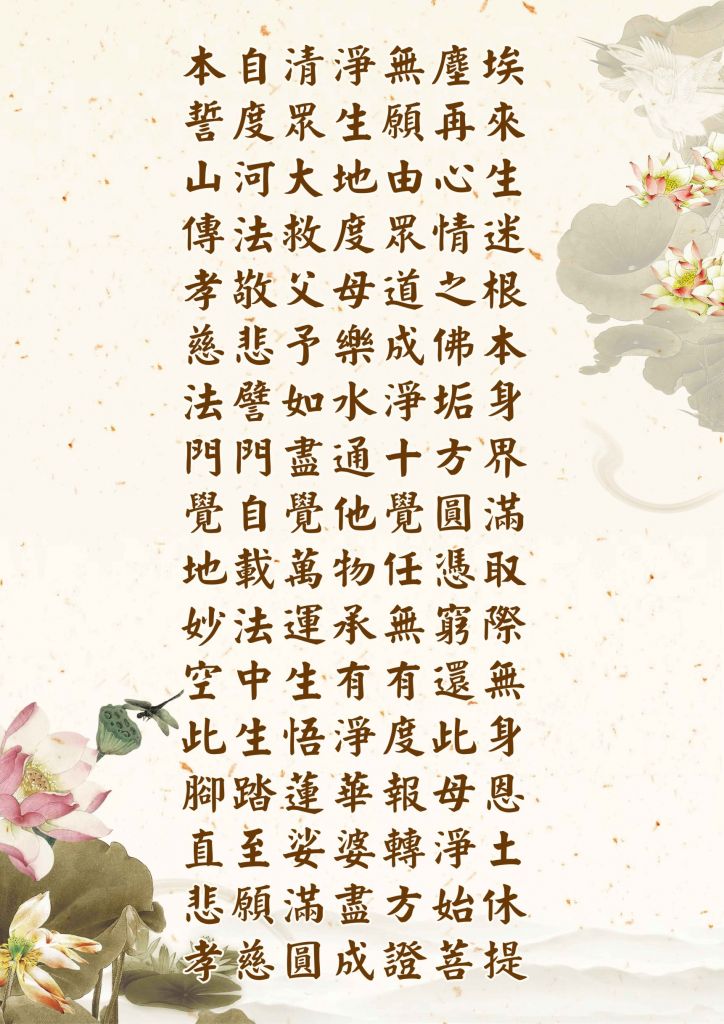 本自清淨無塵埃
誓度眾生願再來
山河大地由心生
傳法救度眾情迷
孝敬父母道之根
慈悲予樂成佛本
法譬如水淨垢身
門門盡通十方界
覺自覺他覺圓滿
地載萬物任憑取
妙法運承無窮際
空中生有有還無
此生悟淨度此身
腳踏蓮華報母恩
直至娑婆轉淨土
悲願滿盡方始休
孝慈圓成證菩提